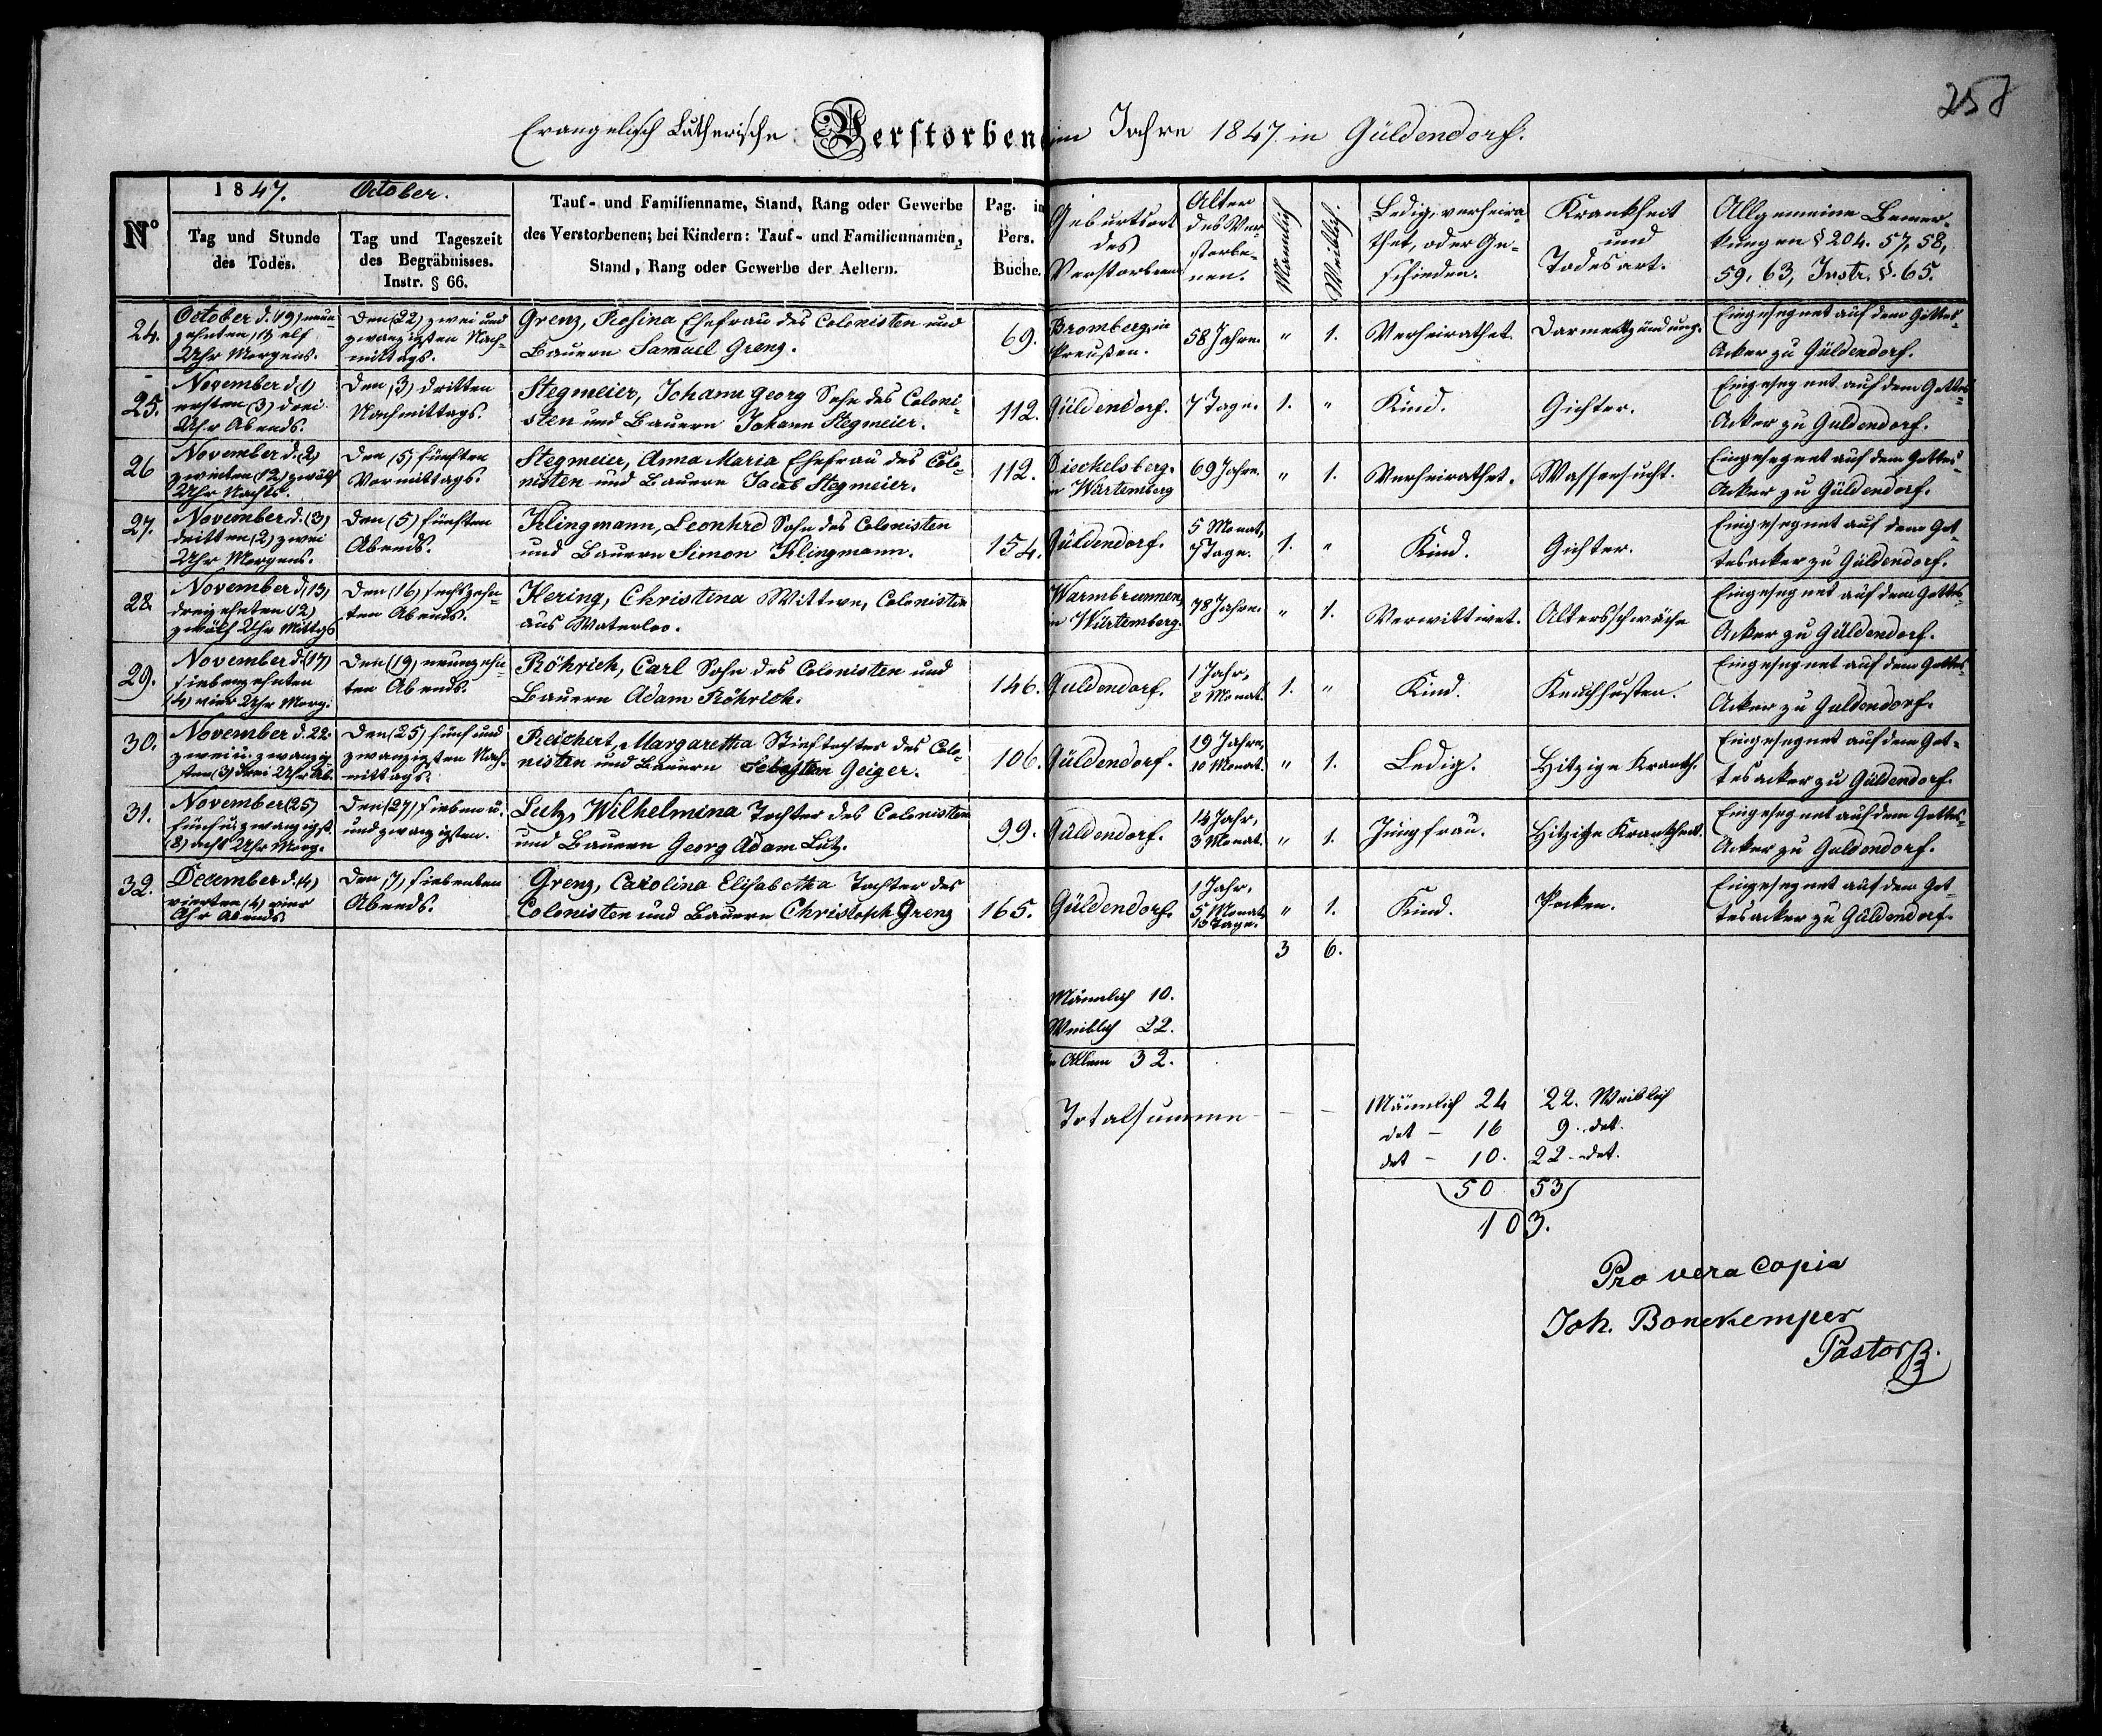 258
Evangelisch Lutherische Verstorbene im Jahre 1847 in Güldendorf.
No
1847. October.
Tag und Stunde
des Todes.
Tag und Tageszeit
des Begräbnisses.
Instr. § 66.
Tauf- und Familienname, Stand, Rang oder Gewerbe
des Verstorbenen; bei Kindern: Tauf- und Familiennamen,
Stand, Rang oder Gewerbe der Aeltern.
Pag. in
Pers.
Buche.
Geburtsort
des
Verstorbenen
Alter
des Ver-
storbe-
nen.
Männlich
Weiblich.
Ledig, verheira-
thet, oder Ge-
schieden.
Krankheit
und
Todesart.
Allgemeine Bemer-
kungen § 204. 57, 58,
59, 63, Instr. §. 65.
24.
October d. (19) neun-
zehnten (11) elf
Uhr Morgens.
Den (22) zwei und
zwanzigsten Nach-
mittags.
Grenz, Rosina Ehefrau des Colonisten und
Bauern Samuel Grenz.
69.
Bromberg in
Preußen.
58 Jahre.
" 1.
Verheirathet.
Darmentzündung.
Eingesegnet auf dem Gottes-
Acker zu Güldendorf.
25.
November d. (1)
ersten (3) drei
Uhr Abends.
Den (3) dritten
Nachmittags.
Stegmeier, Johann Georg Sohn des Coloni-
sten und Bauern Johann Stegmeier.
112.
Güldendorf.
7 Tage.
1. "
Kind.
Gichter.
Eingesegnet auf dem Gottes-
Acker zu Güldendorf.
26
November d. (2)
zweiten (12) zwölf
Uhr Nachts.
Den (5) fünften
Vormittags.
Stegmeier, Anna Maria Ehefrau des Colo-
nisten und Bauern Jacob Stegmeier.
112.
Wärtemberg
69 Jahre.
" 1.
Verheirathet.
Wassersucht.
Eingesegnet auf dem Gottes-
Acker zu Güldendorf.
27.
November d. (3)
dritten (2) zwei
Uhr Morgens.
Den (5) fünften
Abends.
Klingmann, Leonhrd Sohn des Colonisten
und Bauern Simon Klingmann.
154.
Güldendorf.
5 Monat,
7 Tage.
1. "
Kind.
Gichter.
Eingesegnet auf dem Got-
tesacker zu Güldendorf.
28
November d. (13)
dreizehnten (12)
zwölf Uhr Mittgs
Den (16) sechszehn-
ten Abends.
Hering, Christina Wittwe, Colonistin
aus Waterloo.
Warmbrunnen,
Würtemberg.
78 Jahre.
" 1.
Verwittwet.
Altersschwäche
Eingesegnet auf dem Gottes-
Acker zu Güldendorf.
29.
November d. (17)
siebenzehnten
(4) vier Uhr Morg.
Den (19) neunzehn-
ten Abends.
Röhrich, Carl Sohn des Colonisten und
Bauern Adam Röhrich.
146.
Güldendorf.
1 Jahr,
2 Monat.
1. "
Kind.
Keuchhusten.
Eingesegnet auf dem Gottes-
Acker zu Güldendorf.
30.
November d. 22.
zwei u. zwanzig-
sten (3) drei Uhr Ab.
Den (25) fünf und
zwanzigsten Nach-
mittags.
Reichert, Margaretha Stieftochter des Colo-
nisten und Bauern Sebastian Geiger.
106.
Güldendorf.
19 Jahre,
10 Monat.
" 1.
Ledig.
Hitzige Krankh.
Eingesegnet auf dem Got-
tesacker zu Güldendorf.
31.
November (25)
fünf u. zwanzigst.
(8) acht Uhr Morg.
Den (27) sieben u.
und zwanzigsten.
Lutz, Wilhelmina Tochter des Colonisten
und Bauern Georg Adam Lutz.
99.
Güldendorf.
14 Jahr,
3 Monat.
" 1.
Jungfrau.
Hitzige Krankheit.
Eingesegnet auf dem Gottes-
Acker zu Güldendorf.
32.
December d. (4)
vierten (4) vier
Uhr Abends
Den (7) siebenten
Abends.
Grenz, Carolina Elisabetha Tochter des
Colonisten und Bauern Christoph Grenz
165.
Güldendorf.
1 Jahr,
5 Monat,
13 Tage.
" 1.
Kind.
Pocken.
Eingesegnet auf dem Got-
tesacker zu Güldendorf.
3 6.
Männlich 10.
Weiblich 22.
In Allem 32.
Totalsumme - -
Männlich 24 22. Weiblich
det - 16 9. det.
det - 10. 22. det.
50 53
103.
Pro vera Copia
Joh. Bonekemper
Pastor